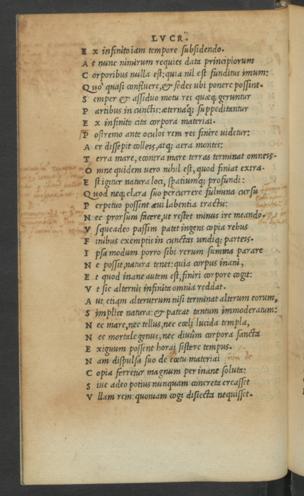 LVCR.
E x infinito iam tempore subsidendo.
A t nunc nimirum requies data principiorum
C orporibus nulla est: quia nil est funditus imum:
Q uo quasi confluere, & sedes ubi ponere possint.
S emper & assiduo motu res quæq; geruntur
P artibus in cunctis: æternaq; suppeditantur
E x infinito cita corpora materiai.
P ostremo ante oculos rem res finire videtur:
A er dissepit colleis, atq; aera montes:
T erra mare, & contra mare terras terminat omneis.
O mne quidem uero nihil est, quod finiat extra.
E st igitur natura loci, spatiumq; profundi:
Q uod neq; clara suo percurrere fulmina cursu
P erpetuo possint æui labentia tractu:
N ec prorsum facere, ut restet minus ire meando.
V sqeadeo passim patet ingens copia rebus
F inibus exemptis in cunctas undiq; parteis.
I psa modum porro sibi rerum summa parare
N e possit, natura tenet: quia corpus inani,
E t quod inane autem est, finiri corpore cogit:
V t sic alternis infinita omnia reddat.
A ut etiam alterutrum nisi terminat alterum eorum,
S implice natura: & pateat tantum immoderatum:
N ec mare, nec tellus, nec cœli lucida templa,
N ec mortale genus, nec diuûm corpora sancta
E xiguum possent horai sistere tempus.
N am dispulsa suo de cœtu materiai
C opia ferretur magnum per inane soluta:
S iue adeo potius nunquam concreta creasset
V llam rem: quoniam cogi disiecta nequisset.